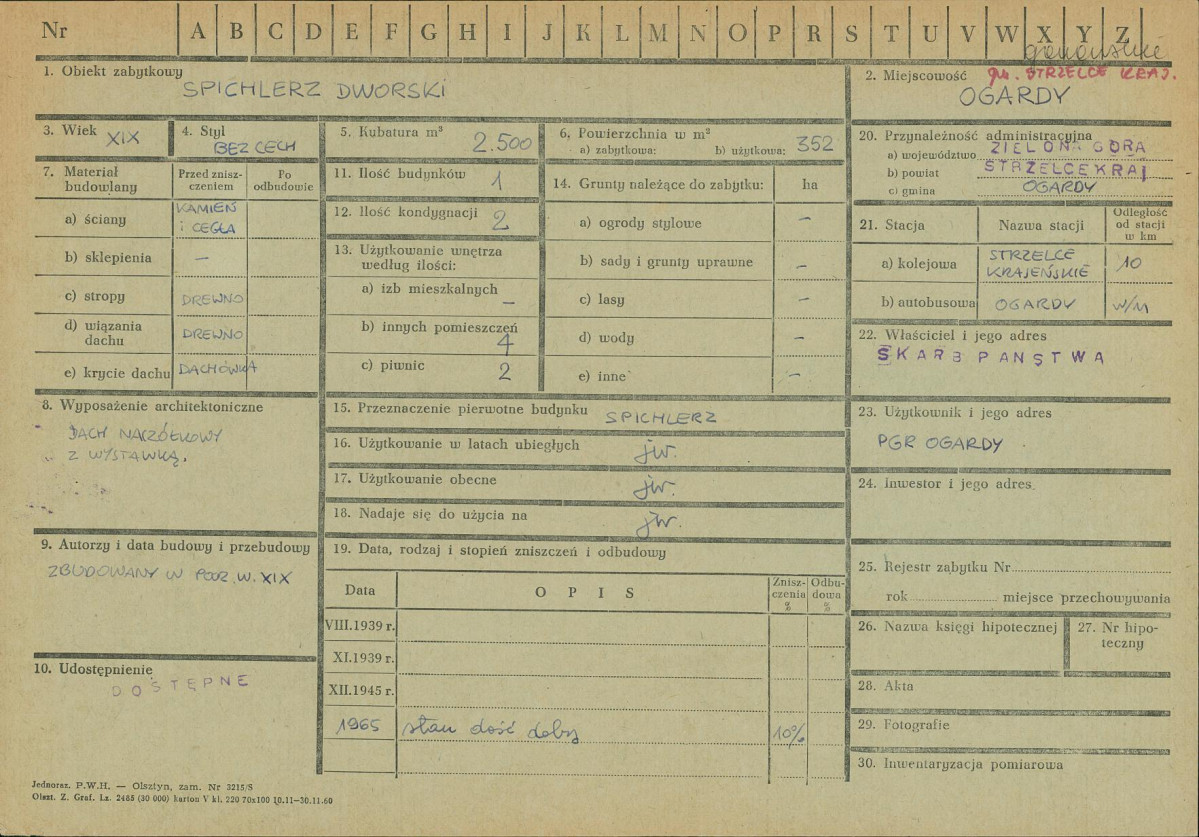 Nr A B C D E F G H I J K L M N O P R S T U V W X Y Z
1. Obiekt zabytkowy
SPICHLERZ DWORSKI
2. Miejscowość gm. STRZELCE KRAJ.
OGARDY
3. Wiek XIX
4. Styl
BEZ CECH
5. Kubatura m³ 2.500
6. Powierzchnia w m²
a) zabytkowa: b) użytkowa: 352
7. Materiał budowlany
Przed zniszczeniem
Po odbudowie
a) ściany KAMIEŃ i CEGŁA
b) sklepienia —
c) stropy DREWNO
d) wiązania dachu DREWNO
e) krycie dachu DACHÓWKA
8. Wyposażenie architektoniczne
DACH NACZÓŁKOWY
Z WYSTAWKĄ.
9. Autorzy i data budowy i przebudowy
ZBUDOWANY W POCZ. W. XIX
10. Udostępnienie
DOSTĘPNE
11. Ilość budynków 1
12. Ilość kondygnacji 2
13. Użytkowanie wnętrza
według ilości:
a) izb mieszkalnych —
b) innych pomieszczeń 4
c) piwnic 2
14. Grunty należące do zabytku: ha
a) ogrody stylowe —
b) sady i grunty uprawne —
c) lasy —
d) wody —
e) inne —
15. Przeznaczenie pierwotne budynku SPICHLERZ
16. Użytkowanie w latach ubiegłych jw.
17. Użytkowanie obecne jw.
18. Nadaje się do użycia na jw.
19. Data, rodzaj i stopień zniszczeń i odbudowy
Data OPIS Zniszczenia % Odbudowa %
VIII.1939 r.
XI.1939 r.
XII.1945 r.
1965 stan dość dobry 10%
20. Przynależność administracyjna
a) województwo ZIELONA GÓRA
b) powiat STRZELCE KRAJ
c) gmina OGARDY
21. Stacja Nazwa stacji Odległość od stacji w km
a) kolejowa STRZELCE KRAJEŃSKIE 10
b) autobusowa OGARDY W/M
22. Właściciel i jego adres
SKARB PAŃSTWA
23. Użytkownik i jego adres
PGR OGARDY
24. Inwestor i jego adres
25. Rejestr zabytku Nr
rok miejsce przechowywania
26. Nazwa księgi hipotecznej
27. Nr hipoteczny
28. Akta
29. Fotografie
30. Inwentaryzacja pomiarowa
Jednoraz. P.W.H. — Olsztyn, zam. Nr 3215/S
Olszt. Z. Graf. Lz. 2485 (30 000) karton V kl. 220 70x100 10.11—30.11.60